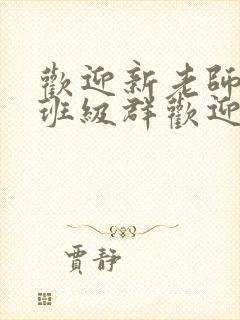 歡迎新老師
班級群歡迎
賈靜